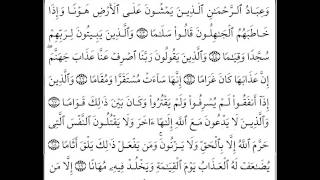 وَعِبَادُ ٱلرَّحْمَٰنِ ٱلَّذِينَ يَمْشُونَ عَلَى ٱلْأَرْضِ هَوْنًا وَإِذَا
خَاطَبَهُمُ ٱلْجَٰهِلُونَ قَالُوا۟ سَلَٰمًا ۝ وَٱلَّذِينَ يَبِيتُونَ لِرَبِّهِمْ
سُجَّدًا وَقِيَٰمًا ۝ وَٱلَّذِينَ يَقُولُونَ رَبَّنَا ٱصْرِفْ عَنَّا عَذَابَ جَهَنَّمَ ۖ
إِنَّ عَذَابَهَا كَانَ غَرَامًا ۝ إِنَّهَا سَآءَتْ مُسْتَقَرًّا وَمُقَامًا ۝ وَٱلَّذِينَ
إِذَآ أَنفَقُوا۟ لَمْ يُسْرِفُوا۟ وَلَمْ يَقْتُرُوا۟ وَكَانَ بَيْنَ ذَٰلِكَ قَوَامًا ۝
وَٱلَّذِينَ لَا يَدْعُونَ مَعَ ٱللَّهِ إِلَٰهًا ءَاخَرَ وَلَا يَقْتُلُونَ ٱلنَّفْسَ ٱلَّتِى
حَرَّمَ ٱللَّهُ إِلَّا بِٱلْحَقِّ وَلَا يَزْنُونَ ۚ وَمَن يَفْعَلْ ذَٰلِكَ يَلْقَ أَثَامًا ۝
يُضَٰعَفْ لَهُ ٱلْعَذَابُ يَوْمَ ٱلْقِيَٰمَةِ وَيَخْلُدْ فِيهِۦ مُهَانًا ۝ إِلَّا مَن